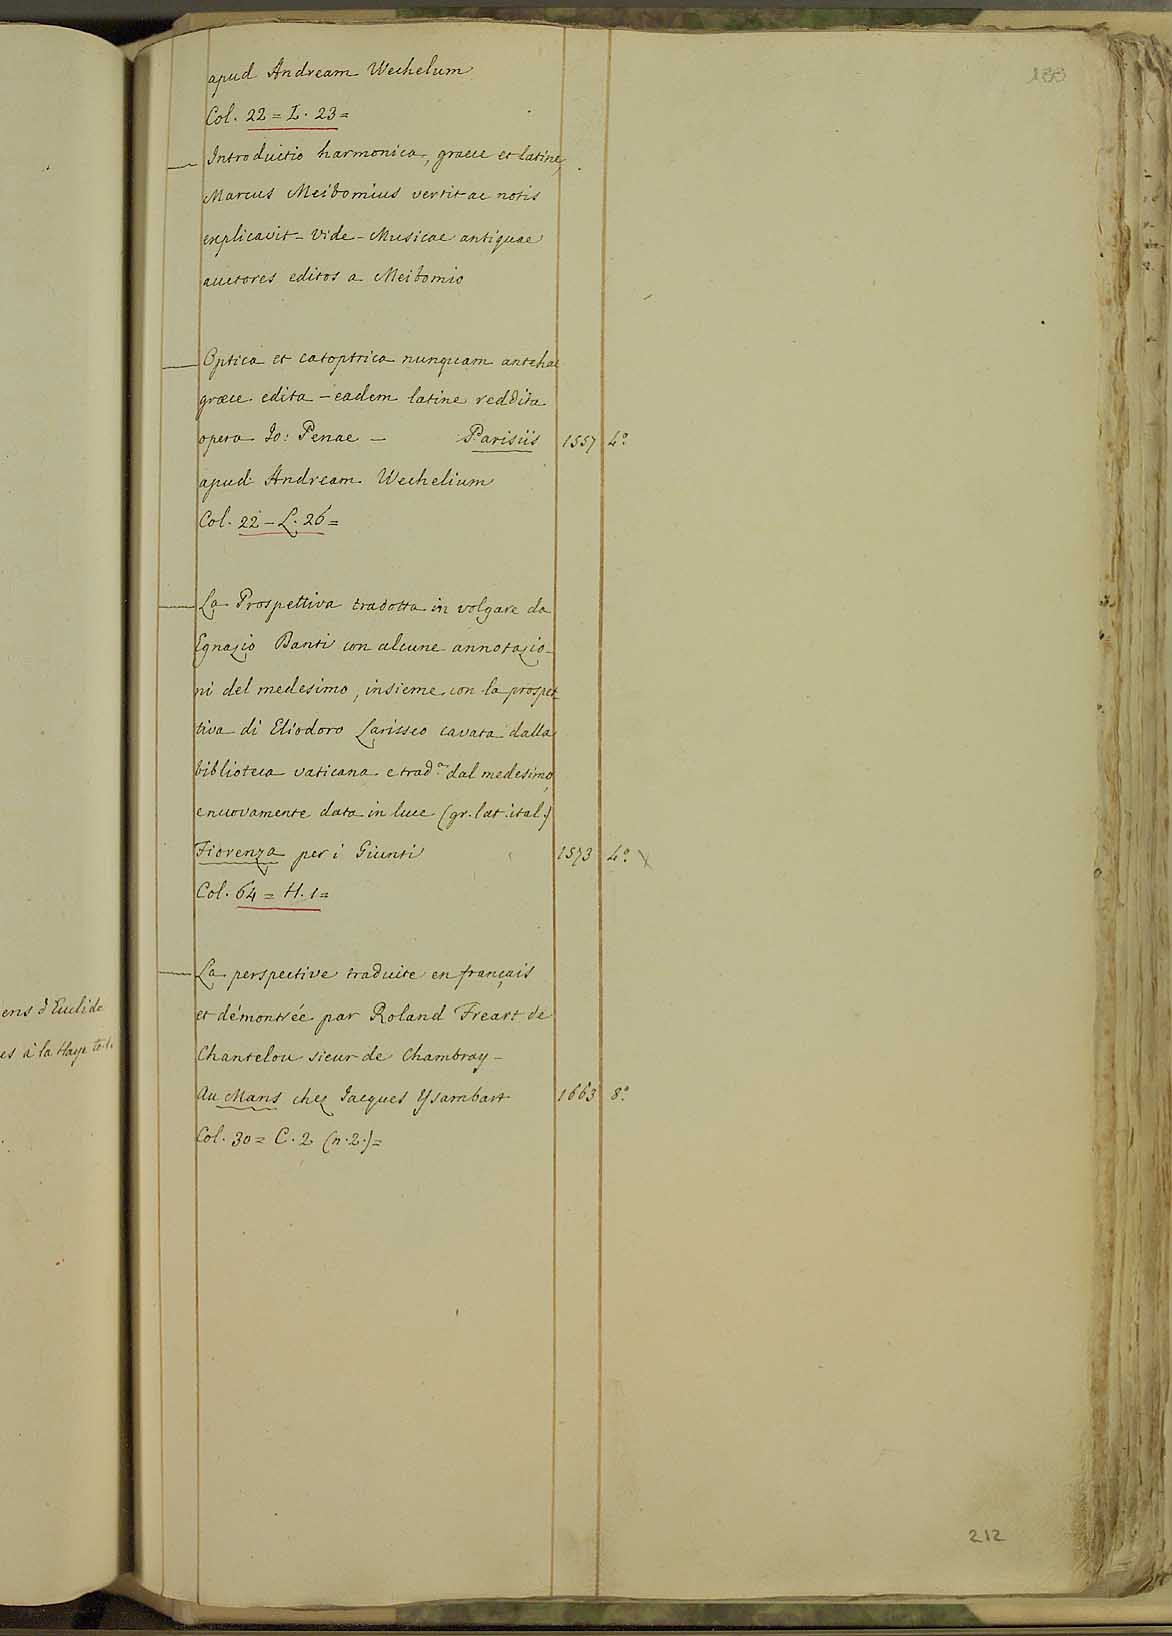 133
apud Andream Wechelum
Col. 22 = L. 23 =
Introductio harmonica, graece et latine,
Marcus Meibomius vertit ac notis
explicavit - Vide - Musicae antiquae
auctores editos a Meibomio
Optica et catoptrica nunquam antehac
graece edita - eadem latine reddita
opera Jo: Penae - Parisiis 1557 4°.
apud Andream Wechelium
Col. 22 - L. 26 =
La Prospettiva tradotta in volgare da
Egnazio Danti con alcune annotazio-
ni del medesimo, insieme con la prospet
tiva di Eliodoro Larisseo cavata dalla
biblioteca vaticana e trad.ª dal medesimo,
e nuovamente data in luce (gr. lat. ital.)
Fiorenza per i Giunti 1573 4°. X
Col. 64 = H. 1 =
La perspective traduite en français
et démontrée par Roland Freart de
Chantelou sieur de Chambray -
Au Mans chez Jacques Ysambart 1663 8°.
Col. 30 = C. 2 (n. 2.) =
ens d'Euclide
es à la Haye
212